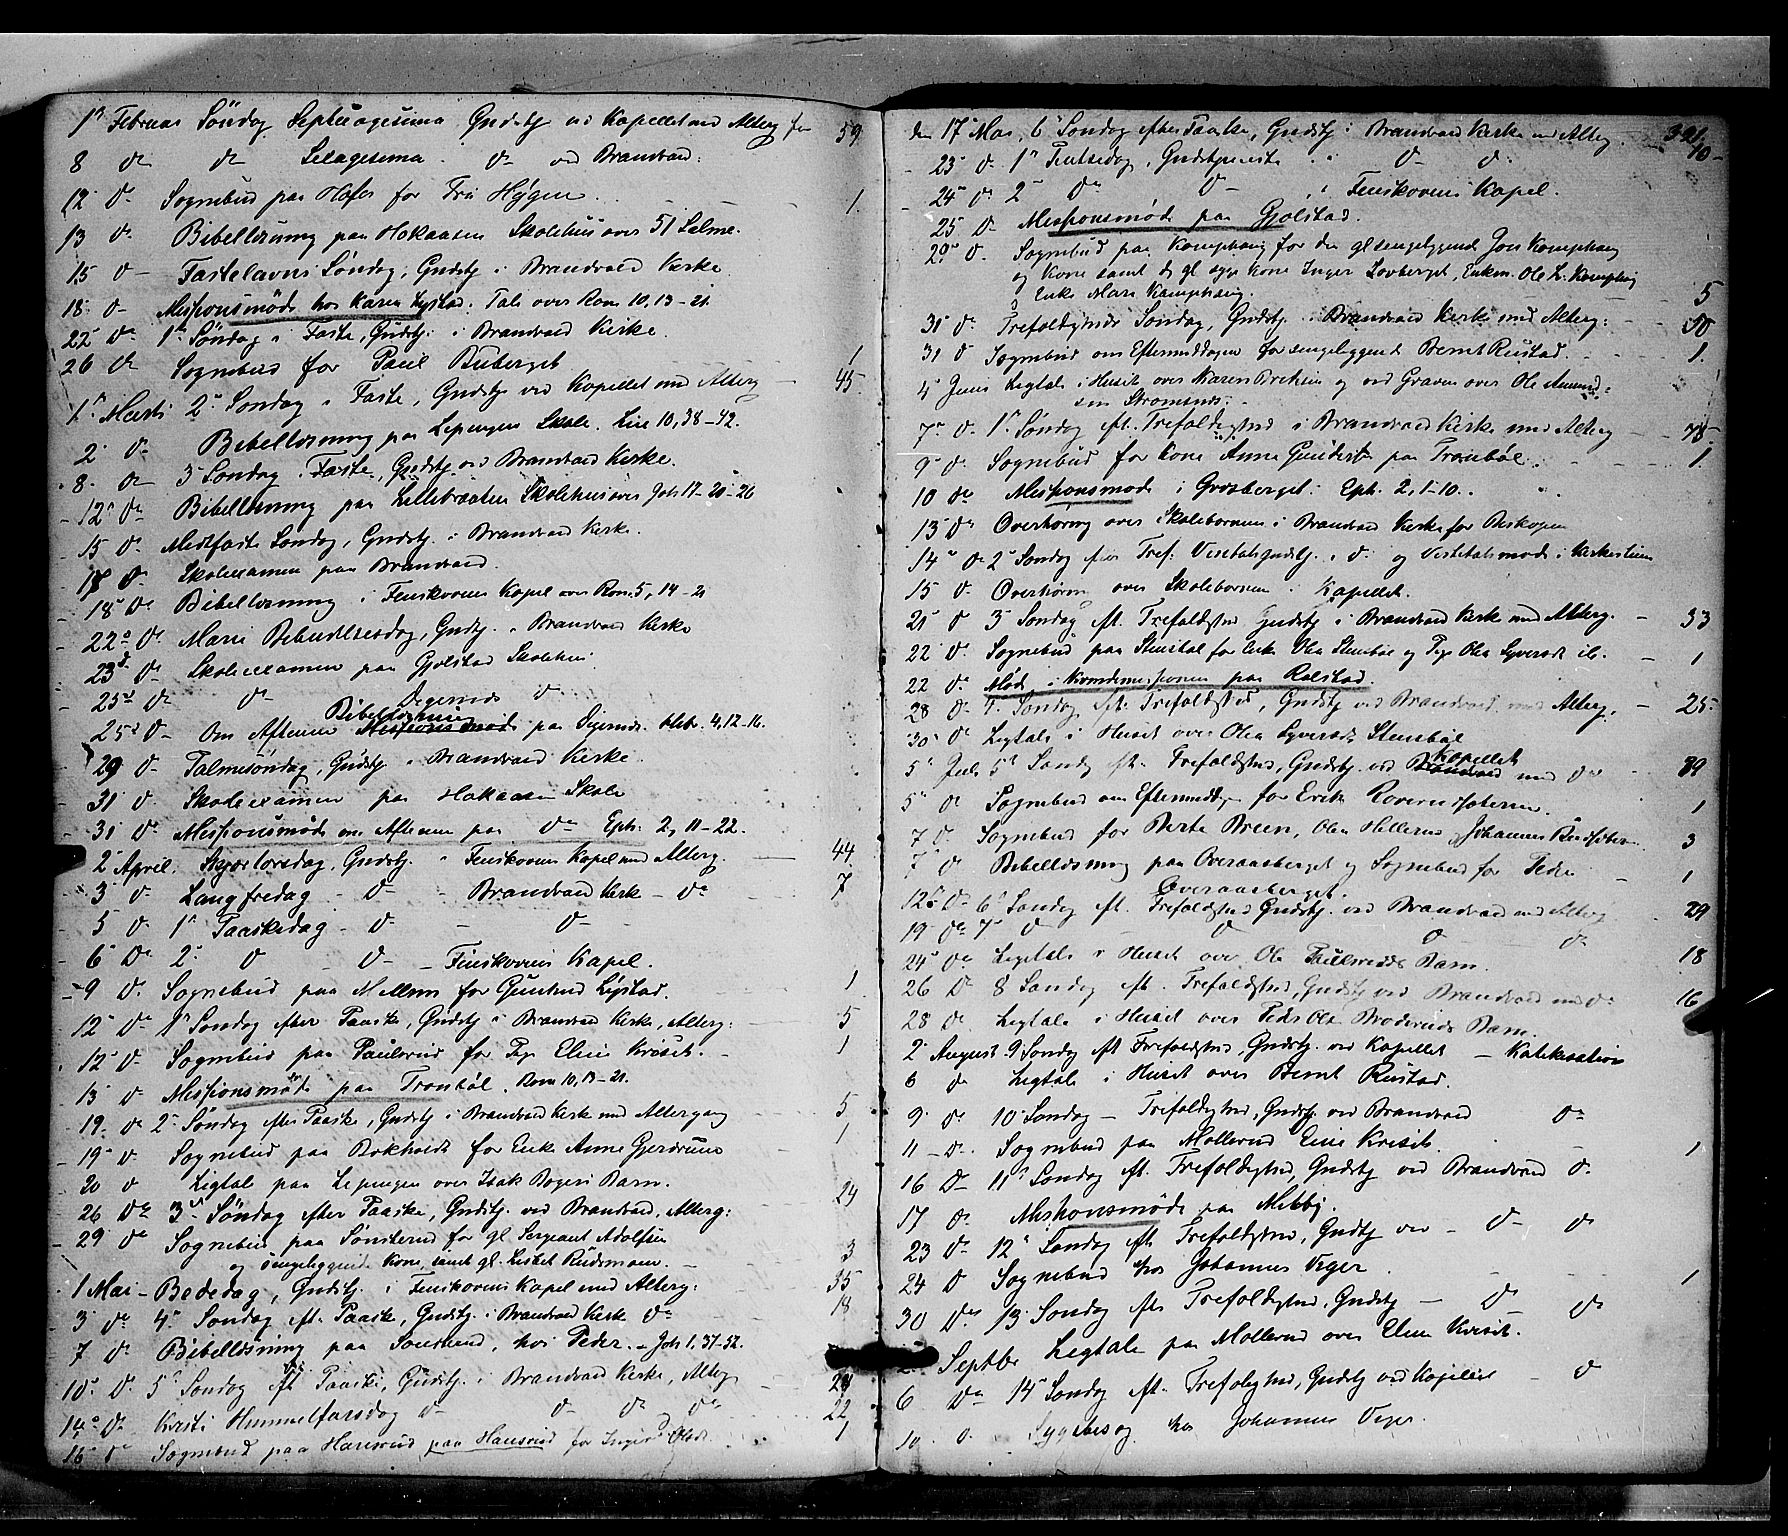 1ste Februar Söndag Septuagesima Gudstj ved Kapellet med Alterg for 59
8 do do Sexagesima do ved Brandvoed:
12 do Sognebud paa Hofos for Fru Hÿgen 1.
13 do Bibellæsning paa Hokaasen Skolehus over 51 Salme.
15 do Fastelavns Söndag, Gudstj i Brandvold Kirke
18 do Missionsmöde hos Karen Lystad. Tale over Rom 10,13-21
22 do 1ste Söndag i Faste, Gudstj. i Brandvold Kirke.
26 do Sognebud for Paul Buberget 1
1ste Marts 2 Söndag i Faste, Gudstj ved Kapellet med Alterg 45
2 do Bibellæsning paa Lepingen Skole. Luc 10,38-42.
8. do 3 Söndag i Faste, Gudstj ved Brandvold Kirke.
12 do Bibellæsning paa Lillebraaten Skolehus over Joh 17-20-26
15 do Midfaste Söndag, Gudstj. i Brandvold Kirke.
17 do Skoleexamen paa Brandvold.
18 do Bibellæsning i Finskovens Kapel over Rom. 5, 14-21
22 do Mariæ Bebudelsesdag, Gudstj. i Brandvold Kirke
23 do Skoleexamen paa Gjölstad Skolehus.
25 do do Digernæs do
25 do Om Aftenen Bibellæsning paa Digernæs. Hebr. 4,12-16.
29 do Palmesöndag, Gudstj i Brandvold Kirke.
31 do Skoleexamen paa Hokaasen Skole
31 do Missionsmöde om Aftenen paa do Eph. 2, 11-22.
2 April. Skjærtorsdag, Gudstj. i Finskovens Kapel med Alterg. 44
3 do Langfredag - do - Brandvold Kirke - do 7
5 do 1ste Paaskedag - do - do
6 do 2. do - do - Finskovens Kapel.
9 do Sognebud paa Mellem for Gunhild Lystad. 1
12 do 1ste Söndag efter Paaske, Gudstj i Brandvold Kirke, Alterg: 5
12 do Sognebud paa Paulsrud for Pige Eline Krosét. 1
13 do Missionsmöde paa Tronböl. Rom 10,13-21.
19 do 2 Söndag efter Paaske, Gudstj i Brandvold Kirke med Altergang 5
19 do Sognebud paa Bokholdt for Enke Anne Gjerdrum 1
20 do Ligtale paa Lepingen over Isak Bogers Barn.
26 do 3 Söndag efter Paaske, Gudstj. ved Brandvold, Alterg: 24
29 do Sognebud paa Sönsterud for gl Sergeant Adolfsen
og sengeliggende Kone, samt gl. Lisbet Rudsmoen. 3
1 Mai - Bededag, Gudstj. i Finskovens Kapel med Alterg: 35
3 do 4 Söndag eft. Paaske, Gudstj. i Brandvold Kirke do 18
7 do Bibellæsning paa Sonsterud, hos Peder. - Joh 1.37-52.
10 do 5 Söndag eft Paaske, Gudstj. i Brandvold Kirke, Alterg 28
14 do Kristi Himmelfartsdag do do do do 22
16 do Sognebud paa Hansrud paa Hansrud for Inger Olsdt. 1
den 17 Mai, 6 Söndag efter Paaske, Gudstj i Brandvold Kirke med Alterg. 40
23 do 1ste Pintsedag, Gudstjeneste i do do
24 do 2 do do i Finskovens Kapel.
25 do Missionsmöde paa Gjölstad.
29 do Sognebud paa Kamphaug for den gl sengeliggende Jon Kamphaug
og Kone samt d gl syge Kone Inger Lovberget, Enkm. Ole L. Kamphaug
og Enke Mari Kamphaug. 5
31 do Trefoldigheds Söndag, Gudstj. i Brandvold Kirke med Alterg: 50
31 do Sognebud om Eftermiddagen for sengeliggende Bernt Rustad. 1.
4 Juni Ligtale i Huset over Karen Berthsen og ved Graven over Ole Amund=
sen Stromsnes.
7 do 1ste Söndag eft. Trefoldighed i Brandvold Kirke med Alterg 78
9 do Sognebud for Kone Anne Gundersdt paa Tronböl. 1.
10 do Missionsmöde i Grosberget. Eph. 2,1-10.
13 do Overhöring over Skolebornene i Brandvold Kirke for Biskopen
14 do 2 Söndag efter Tref: Visitatsgudstj. i do og Visitatsmöde i Kirkestuen
15 do Overhöring over Skolebornene i Kapellet.
21 do 3 Söndag eft. Trefoldighed Gudstj i Brandvold Kirke med Alterg. 33
22 do Sognebud paa Stensböl for Enke Olea Stensböl og Pige Olea Syversdt ib. 1
22 do Möde i Kvindemissionen paa Rolstad.
28 do 4 Söndag eft. Trefoldighed, Gudstj ved Brandvold med Alterg. 25
30 do Ligtale i Huset over Olea Syversdt Stensböl
5 Juli 5 Söndag eft. Trefoldighed, Gudstj. ved Kapellet med do 89
5 do Sognebud om Eftermiddag for Erik Rovernsæteren 1
7 do Sognebud for Berte Breen, Olea Hellerud, Johannes Rudsberget 3
7 do Bibellæsning paa Overaasberget og Sognebud for Peder
Overaasberget. 1
12 do 6 Söndag eft. Trefoldighed Gudstj. ved Brandvold med Alterg 29
19 do 7 do do do do
24 do Ligtale i Huset over Ole Paulsruds Barn. 18
26 do 8 Söndag eft. Trefoldighed, Gudstj ved Brandvold med do 16
28 do Ligtale i Huset over Peder Olsen Broderuds Barn.
2 August 9 Söndag eft Trefoldighed, Gudstj. ved Kapellet - Katekisation
6 do Ligtale i Huset over Bernt Rustad.
9 do 10 Söndag - Trefoldighed, Gudstj ved Brandvold do
11 - do Sognebud paa Mollerud Eline Krosét. 1
16 do 11 Söndag eft. Trefoldighed, Gudstj ved Brandvold do
17 do Missionsmöde paa Mebby.
23 do 12 Söndag eft Trefoldighed, Gudstj ved - do do
24 do Sognebud hos Johannes Veger 1
30 do 13 Söndag eft Trefoldighed, Gudstj - do do
Septbr Ligtale paa Mollerud over Eline Krosét.
6 do 14 Söndag eft. Trefoldighed, Gudstj ved Kapellet - do
10 do Sygebesög hos Johannes Veger.